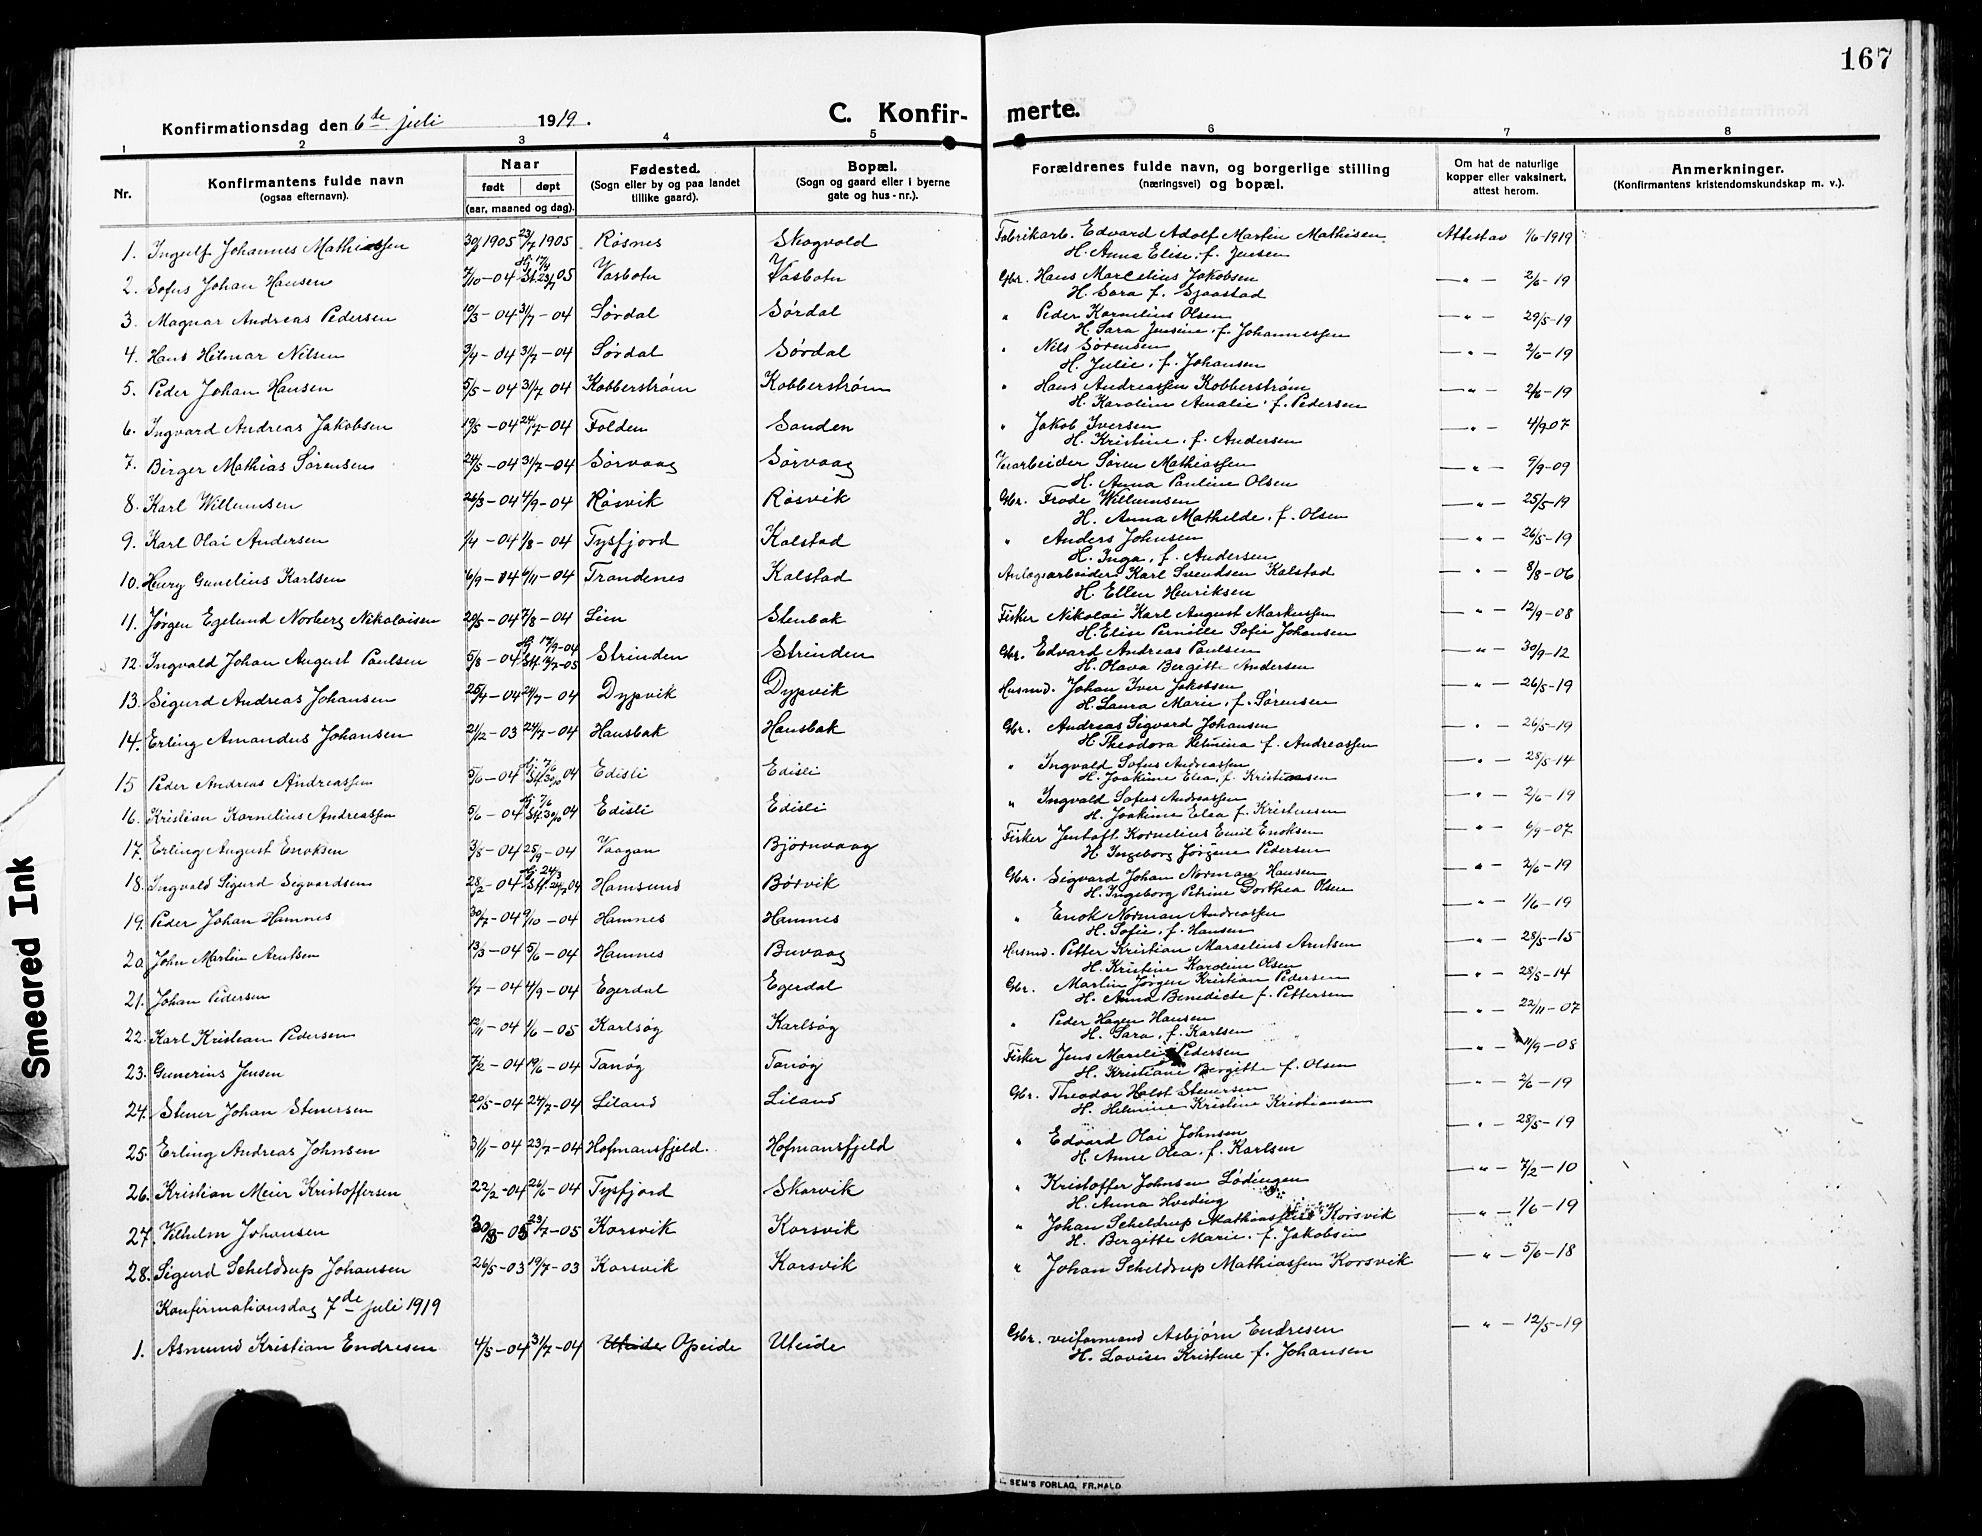 167
C. Konfirmerte.
Konfirmationsdag den 6te juli 1919.
1 2 3 4 5 6 7 8
Nr.
Konfirmantens fulde navn
(ogsaa efternavn).
Naar
født døpt
(aar, maaned og dag).
Fødested.
(Sogn eller by og paa landet
tillike gaard).
Bopæl.
(Sogn og gaard eller i byerne
gate og hus-nr.).
Forældrenes fulde navn, og borgerlige stilling
(næringsvei) og bopæl.
Om hat de naturlige
kopper eller vaksinert,
attest herom.
Anmerkninger.
(Konfirmantens kristendomskundskap m. v.).
1. Ingulf Johannes Mathiassen 1905 23/7 1905 Røsnes Skogvold Fabrikarb. Edvard Adolf Martin Mathisen Attest av 1/6-1919
H. Anna Elise, f. Jensen
2. Sofus Johan Hansen 7/10-04 Hj. 17/4 St. 23/7 05 Vasbotn Vasbotn Gbr. Hans Marcelius Jakobsen —"— 2/6-19
H. Sara f. Sjaastad
3. Magnar Andreas Pedersen 10/3-04 3/7-04 Sørdal Sørdal " Peder Kornelius Olsen —"— 29/5-19
H. Sara Jensine, f. Johannessen
4. Hans Hilmar Nilsen 3/4-04 31/7-04 Sørdal Sørdal " Nils Sørensen —"— 2/6-19
H. Julie, f. Johansen
5. Peder Johan Hansen 5/5-04 31/7 04 Kobberstrøm Kobberstrøm " Hans Andreassen Kobberstrøm —"— 2/6-19
H. Karoline Amalie, f. Pedersen
6. Ingvard Andreas Jakobsen 19/5-04 24/7-04 Folden Sanden " Jakob Iversen —"— 4/9 07
H. Kristine, f. Andersen
7. Birger Mathias Sørensen 24/5-04 31/7-04 Sørvaag Sørvaag Veiarbeider Søren Mathiassen —"— 9/9-09
H. Anna Pauline Olsen
8. Karl Willumsen 26/3-04 4/9-04 Røsvik Røsvik Gbr. Frode Willumsen —"— 25/5-19
H. Anna Mathilde, f. Olsen
9. Karl Olai Andersen 1/4-04 1/8-04 Tysfjord Kalstad " Anders Johnsen —"— 26/5-19
H. Inga, f. Andersen
10. Henry Gunelius Karlsen 6/9-04 6/11-04 Trondenes Kalstad Anlægsarbeider Karl Svendsen Kalstad —"— 8/8-06
H. Ellen Henriksen
11. Jørgen Egelund Norberg Nikolaisen 20/5-04 7/8-04 Lein Stenbak Fisker Nikolai Karl August Markussen —"— 12/9-08
H. Elise Pernille Sofie Johansen
12. Ingvald Johan August Paulsen 5/8-04 Hj. 17/9-04 Stf. 12/2-05 Strinden Strinden Gbr. Edvard Andreas Paulsen —"— 30/9-12
H. Olava Bergitte Andersen
13. Sigurd Andreas Johansen 25/4-04 24/7-04 Dypvik Dypvik Husmd. Johan Iver Jakobsen —"— 26/5-19
H. Laura Marie, f. Sørensen
14. Erling Amandus Johansen 21/12-03 24/7-04 Hansbak Hansbak Gbr. Andreas Sigvard Johansen —"— 26/5-19
H. Theodora Helmina f. Andreassen
15 Peder Andreas Andreassen 5/6-04 Hj. 7/6 Stf. 30/10 04 Edisli Edisli " Ingvald Sofus Andreassen —"— 28/5-14
H. Joakime Elea, f. Kristiansen
16. Kristian Kornelius Andreassen 5/6-04 Hj. 7/6 Stf. 30/10 04 Edisli Edisli " Ingvald Sofus Andreassen —"— 2/6-19
H. Joakime Elea f. Kristensen
17. Erling August Enoksen 3/8-04 25/9-04 Vaagan Bjørnvaag Fisker Jentoft Kornelius Emil Enoksen —"— 6/9-07
H. Ingeborg Jørgine Pedersen
18. Ingvald Sigurd Sigvardsen 28/2-04 Hj. 24/3 Stf. 24/7 04 Hamsund Børvik Gbr. Sigvard Johan Norman Hansen —"— 2/6-19
H. Ingeborg Petrine Dorthea Olsen
19. Peder Johan Hamnes 30/7-04 9/10-04 Hamnes Hamnes " Enok Norman Andreassen —"— 1/6-19
H. Sofie, f. Hansen
20 John Martin Arntsen 13/3-04 5/6-04 Hamnes Buvaag Husmd. Petter Kristian Marselius Arntsen —"— 28/5-15
H. Kristine Karoline Olsen
21. Johan Pedersen 1/7-04 4/9-04 Egerdal Egerdal Gbr. Martin Jørgen Kristian Pedersen —"— 28/5-14
H. Anna Benedicte f. Pettersen
22. Karl Kristian Pedersen 12/11-04 1/6-05 Karlsøg Karlsøg " Peder Hagen Hansen —"— 22/11-07
H. Sara, f. Karlsen
23. Gunerius Jensen 7/2-04 19/6-04 Tanøg Tanøg Fisker Jens Pedersen —"— 11/9-08
H. Kristiane Bergitte f. Olsen
24. Stener Johan Stenersen 20/5-04 24/7-04 Liland Liland Gbr. Theodor Holst Stenersen —"— 2/6-19
H. Helmine Kristine Kristiansen
25. Erling Andreas Johnsen 3/1-04 23/7-04 Hofmansfjeld. Hofmansfjeld " Edvard Olai Johnsen —"— 28/5-19
H. Anne Olea, f. Karlsen
26. Kristian Meier Kristoffersen 22/2-04 26/6-04 Tysfjord Skarvik " Kristoffer Johnsen Lødingen —"— 7/2-10
H. Anna Hveding
27. Vilhelm Johansen 23/7-05 Korsvik Korsvik " Johan Scheldrup Mathiassen Korsvik —"— 1/6-19
H. Bergitte Marie, f. Jakobsen
28. Sigurd Scheldrup Johansen 26/5-03 19/7-03 Korsvik Korsvik " Johan Scheldrup Mathiassen Korsvik —"— 5/6-18
Konfirmationsdag 7de juli 1919
1. Asmund Kristian Endresen 4/5-04 31/7-04 Uteide Opeide Uteide Gbr. veiformand Asbjørn Endresen —"— 12/5-19
H. Lovise Kristene f. Johansen
SEM'S FORLAG, FR.HALD
Smeared Ink